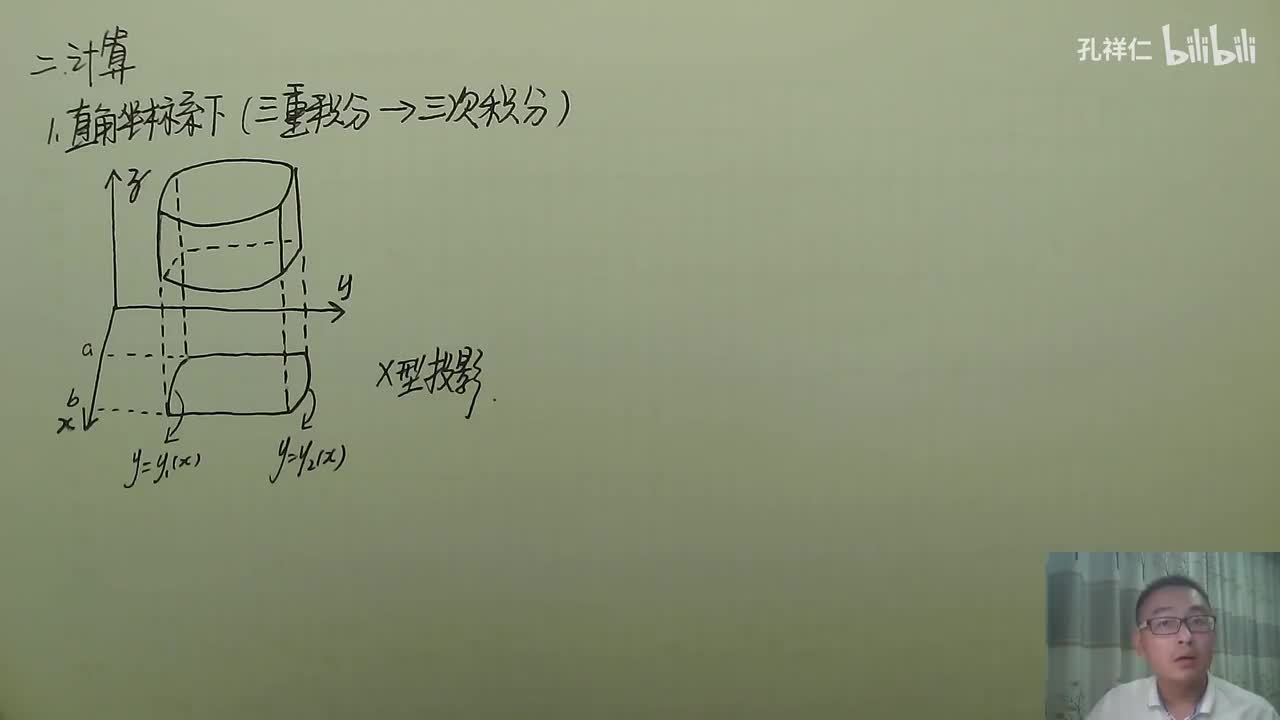 孔祥仁 bilibili
二.计算
1.直角坐标系下(三重积分→三次积分)
z
y
a
b
x
X型投影.
y=y₁(x)
y=y₂(x)